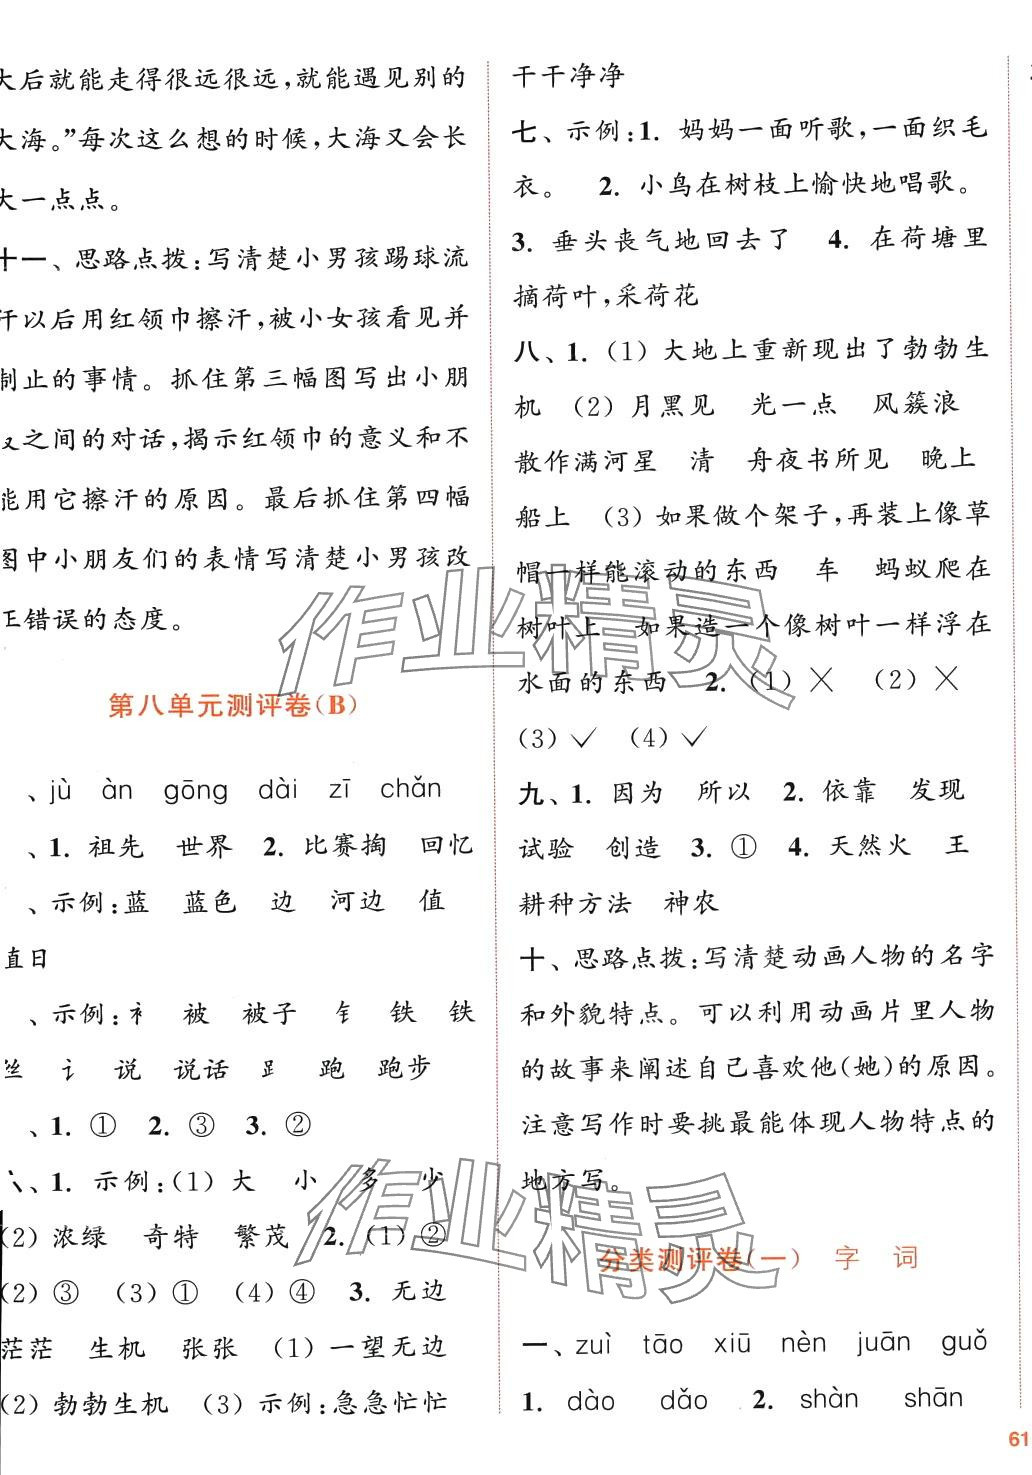 大后就能走得很远很远，就能遇见别的
大海。”每次这么想的时候，大海又会长
大一点点。
十一、思路点拨：写清楚小男孩踢球流
汗以后用红领巾擦汗，被小女孩看见并
制止的事情。抓住第三幅图写出小朋
友之间的对话，揭示红领巾的意义和不
能用它擦汗的原因。最后抓住第四幅
图中小朋友们的表情写清楚小男孩改
正错误的态度。
第八单元测评卷(B)
、jù àn gōng dài zī chǎn
、1. 祖先 世界 2. 比赛掏 回忆
、示例：蓝 蓝色 边 河边 值
直日
、示例：衤 被 被子 钅 铁 铁
丝 讠 说 说话 𧾷 跑 跑步
、1. ① 2. ③ 3. ②
、1. 示例：(1) 大 小 多 少
(2) 浓绿 奇特 繁茂 2. (1) ②
(2) ③ (3) ① (4) ④ 3. 无边
茫茫 生机 张张 (1) 一望无边
(2) 勃勃生机 (3) 示例：急急忙忙
干干净净
七、示例：1. 妈妈一面听歌，一面织毛
衣。 2. 小鸟在树枝上愉快地唱歌。
3. 垂头丧气地回去了 4. 在荷塘里
摘荷叶，采荷花
八、1. (1) 大地上重新现出了勃勃生
机 (2) 月黑见 光一点 风簇浪
散作满河星 清 舟夜书所见 晚上
船上 (3) 如果做个架子，再装上像草
帽一样能滚动的东西 车 蚂蚁爬在
树叶上 如果造一个像树叶一样浮在
水面的东西 2. (1) × (2) ×
(3) √ (4) √
九、1. 因为 所以 2. 依靠 发现
试验 创造 3. ① 4. 天然火 王
耕种方法 神农
十、思路点拨：写清楚动画人物的名字
和外貌特点。可以利用动画片里人物
的故事来阐述自己喜欢他(她)的原因。
注意写作时要挑最能体现人物特点的
地方写。
分类测评卷(一) 字 词
一、zuì tāo xiū nèn juān guǒ
1. dào dǎo 2. shàn shān
61
作业精灵
作业精灵